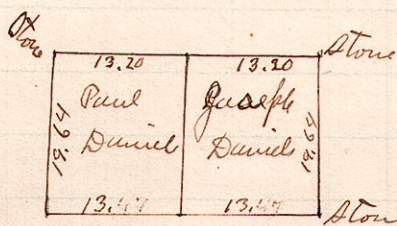 Stone
Stone
13.20
13.20
19.64
Paul
Daniel
Joseph
Daniels
19.64
13.47
13.47
Stone